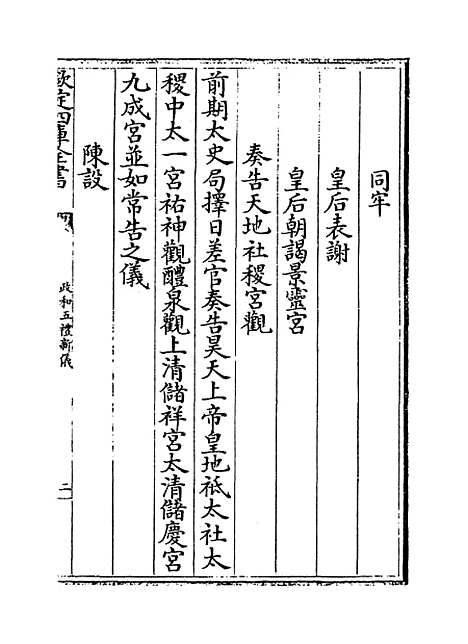 同牢
皇后表謝
皇后朝謁景靈宮
奏告天地社稷宮觀
前期太史局擇日差官奏告昊天上帝皇地祇太社太
稷中太一宮祐神觀醴泉觀上清儲祥宮太清儲慶宮
九成宮並如常告之儀
陳設
欽定四庫全書
政和五禮新儀
二